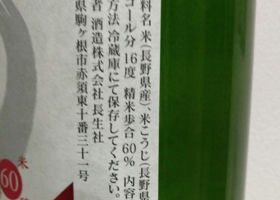 料名 米(長野県産)、米こうじ(長野県
コール分 16度 精米歩合 60% 内容
方法 冷蔵庫にて保存してください。
者 酒造株式会社 長生社
県駒ヶ根市赤須東十番三十一号
米
60